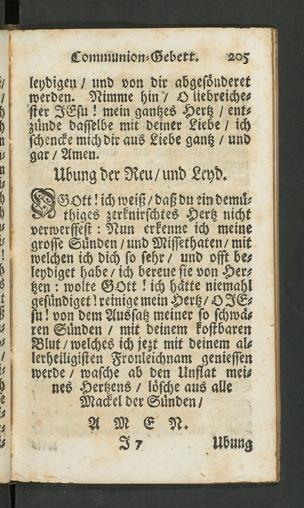 Communion-Gebett. 205
leydigen / und von dir abgesönderet
werden. Nimme hin / O liebreiche-
ster JEsu ! mein gantzes Hertz / ent-
zünde dasselbe mit deiner Liebe / ich
schencke mich dir aus Liebe gantz / und
gar / Amen.
Ubung der Reu / und Leyd.
O GOtt ! ich weiß / daß du ein demü-
thiges zerknirschtes Hertz nicht
verwerffest : Nun erkenne ich meine
grosse Sünden / und Missethaten / mit
welchen ich dich so sehr / und offt be-
leydiget habe / ich bereue sie von Her-
tzen : wolte GOtt ! ich hätte niemahl
gesündiget ! reinige mein Hertz / O JE-
su ! von dem Aussatz meiner so schwä-
ren Sünden / mit deinem kostbaren
Blut / welches ich jezt mit deinem al-
lerheiligisten Fronleichnam geniessen
werde / wasche ab den Unflat mei-
nes Hertzens / lösche aus alle
Mackel der Sünden /
A M E N.
J 7 Ubung